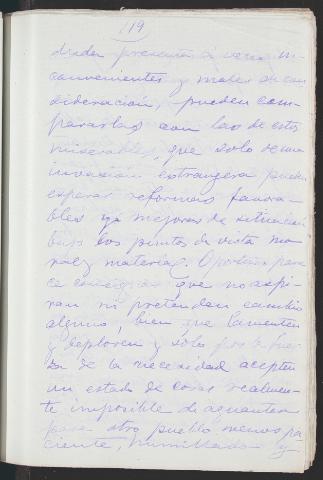 119
dudas presenta á veces in-
convenientes y males de con-
sideración, pueden com-
pararlas con las de estos
miserables, que solo de una
invasión extrangera pueden
esperar reformas favora-
bles y mejoras de situación
bajo los puntos de vista mo-
ral y material. Oportuno pare-
ce consignar que no aspi-
ran ni pretenden cambio
alguno, bien que lamenten
y deploren y solo por la fuer-
za de la necesidad acepten
un estado de cosas realmen-
te imposible de aguantar
para otro pueblo menos pa-
ciente, humillado y